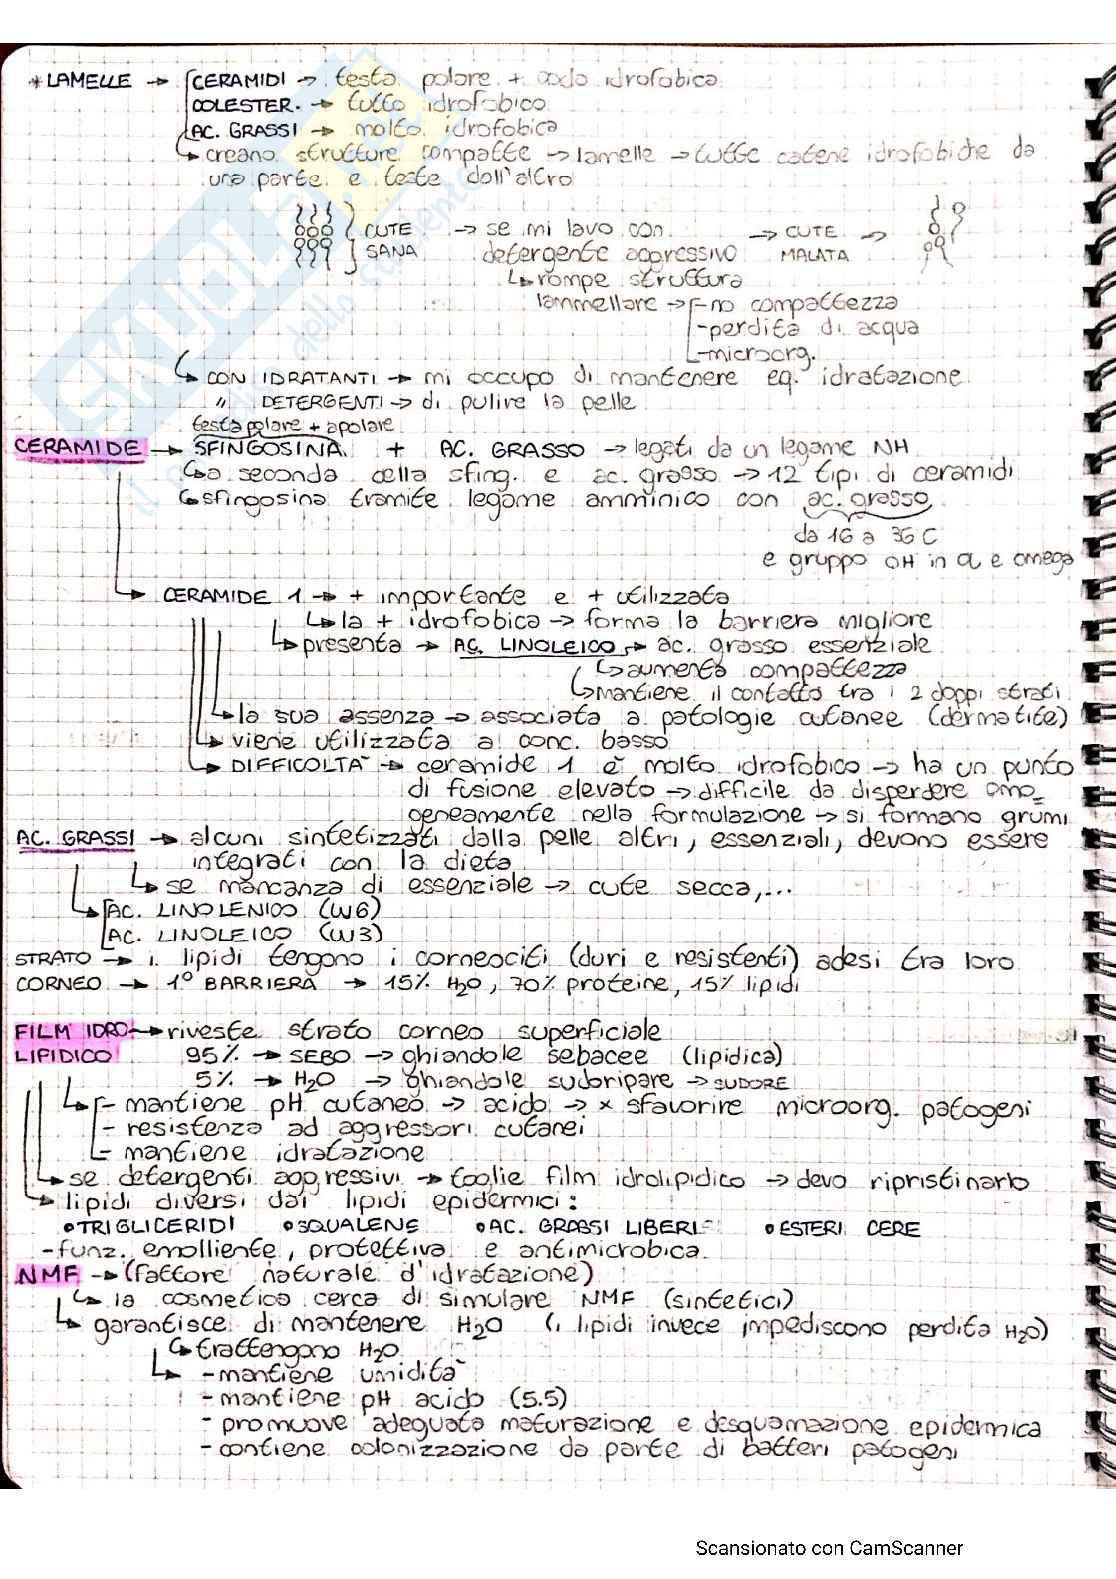 * LAMELLE → CERAMIDI → testa polare + coda idrofobica
COLESTER. → tutto idrofobico
AC. GRASSI → molto idrofobica
↳ creano strutture compatte → lamelle → tutte catene idrofobiche da
una parte e teste dall'altro
CUTE SANA → se mi lavo con detergente aggressivo → CUTE MALATA →
↳ rompe struttura
lammellare → - no compattezza
- perdita di acqua
- microorg.
↳ CON IDRATANTI → mi occupo di mantenere eq. idratazione
" DETERGENTI → di pulire la pelle
testa polare + apolare
CERAMIDE → SFINGOSINA + AC. GRASSO → legati da un legame NH
↳ a seconda della sfing. e ac. grasso → 12 tipi di ceramidi
↳ sfingosina tramite legame amminico con ac. grasso
da 16 a 36 C
e gruppo OH in α e omega
↳ CERAMIDE 1 → + importante e + utilizzata
↳ la + idrofobica → forma la barriera migliore
↳ presenta → AC. LINOLEICO → ac. grasso essenziale
↳ aumenta compattezza
↳ mantiene il contatto tra i 2 doppi strati
↳ la sua assenza → associata a patologie cutanee (dermatite)
↳ viene utilizzata a conc. basso
↳ DIFFICOLTÀ → ceramide 1 è molto idrofobico → ha un punto
di fusione elevato → difficile da disperdere omo=
geneamente nella formulazione → si formano grumi
AC. GRASSI → alcuni sintetizzati dalla pelle altri, essenziali, devono essere
integrati con la dieta
↳ se mancanza di essenziale → cute secca,...
↳ AC. LINOLENICO (W6)
AC. LINOLEICO (W3)
STRATO → i lipidi tengono i corneociti (duri e resistenti) adesi tra loro
CORNEO → 1° BARRIERA → 15% H₂O, 70% proteine, 15% lipidi
FILM IDRO → riveste strato corneo superficiale
LIPIDICO 95% → SEBO → ghiandole sebacee (lipidica)
5% → H₂O → ghiandole sudoripare → SUDORE
↳ - mantiene pH cutaneo → acido → x sfavorire microorg. patogeni
- resistenza ad aggressori cutanei
- mantiene idratazione
↳ se detergenti aggressivi → toglie film idrolipidico → devo ripristinarlo
↳ lipidi diversi dai lipidi epidermici:
• TRIGLICERIDI • SQUALENE • AC. GRASSI LIBERI • ESTERI CERE
- funz. emolliente, protettiva e antimicrobica.
NMF → (fattore naturale d'idratazione)
↳ la cosmetica cerca di simulare NMF (sintetici)
↳ garantisce di mantenere H₂O (i lipidi invece impediscono perdita H₂O)
↳ trattengono H₂O
↳ - mantiene umidità
- mantiene pH acido (5.5)
- promuove adeguata maturazione e desquamazione epidermica
- contiene colonizzazione da parte di batteri patogeni
Scansionato con CamScanner